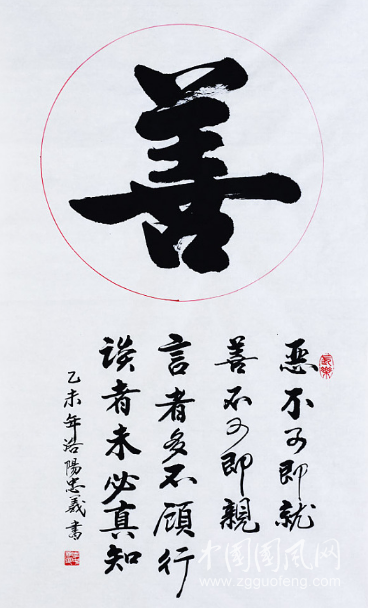 善
恶不可即就
善不可即親
言者多不顧行
谈者未必真知
乙未年洛陽忠義書
中国国风网
www.zgguofeng.com